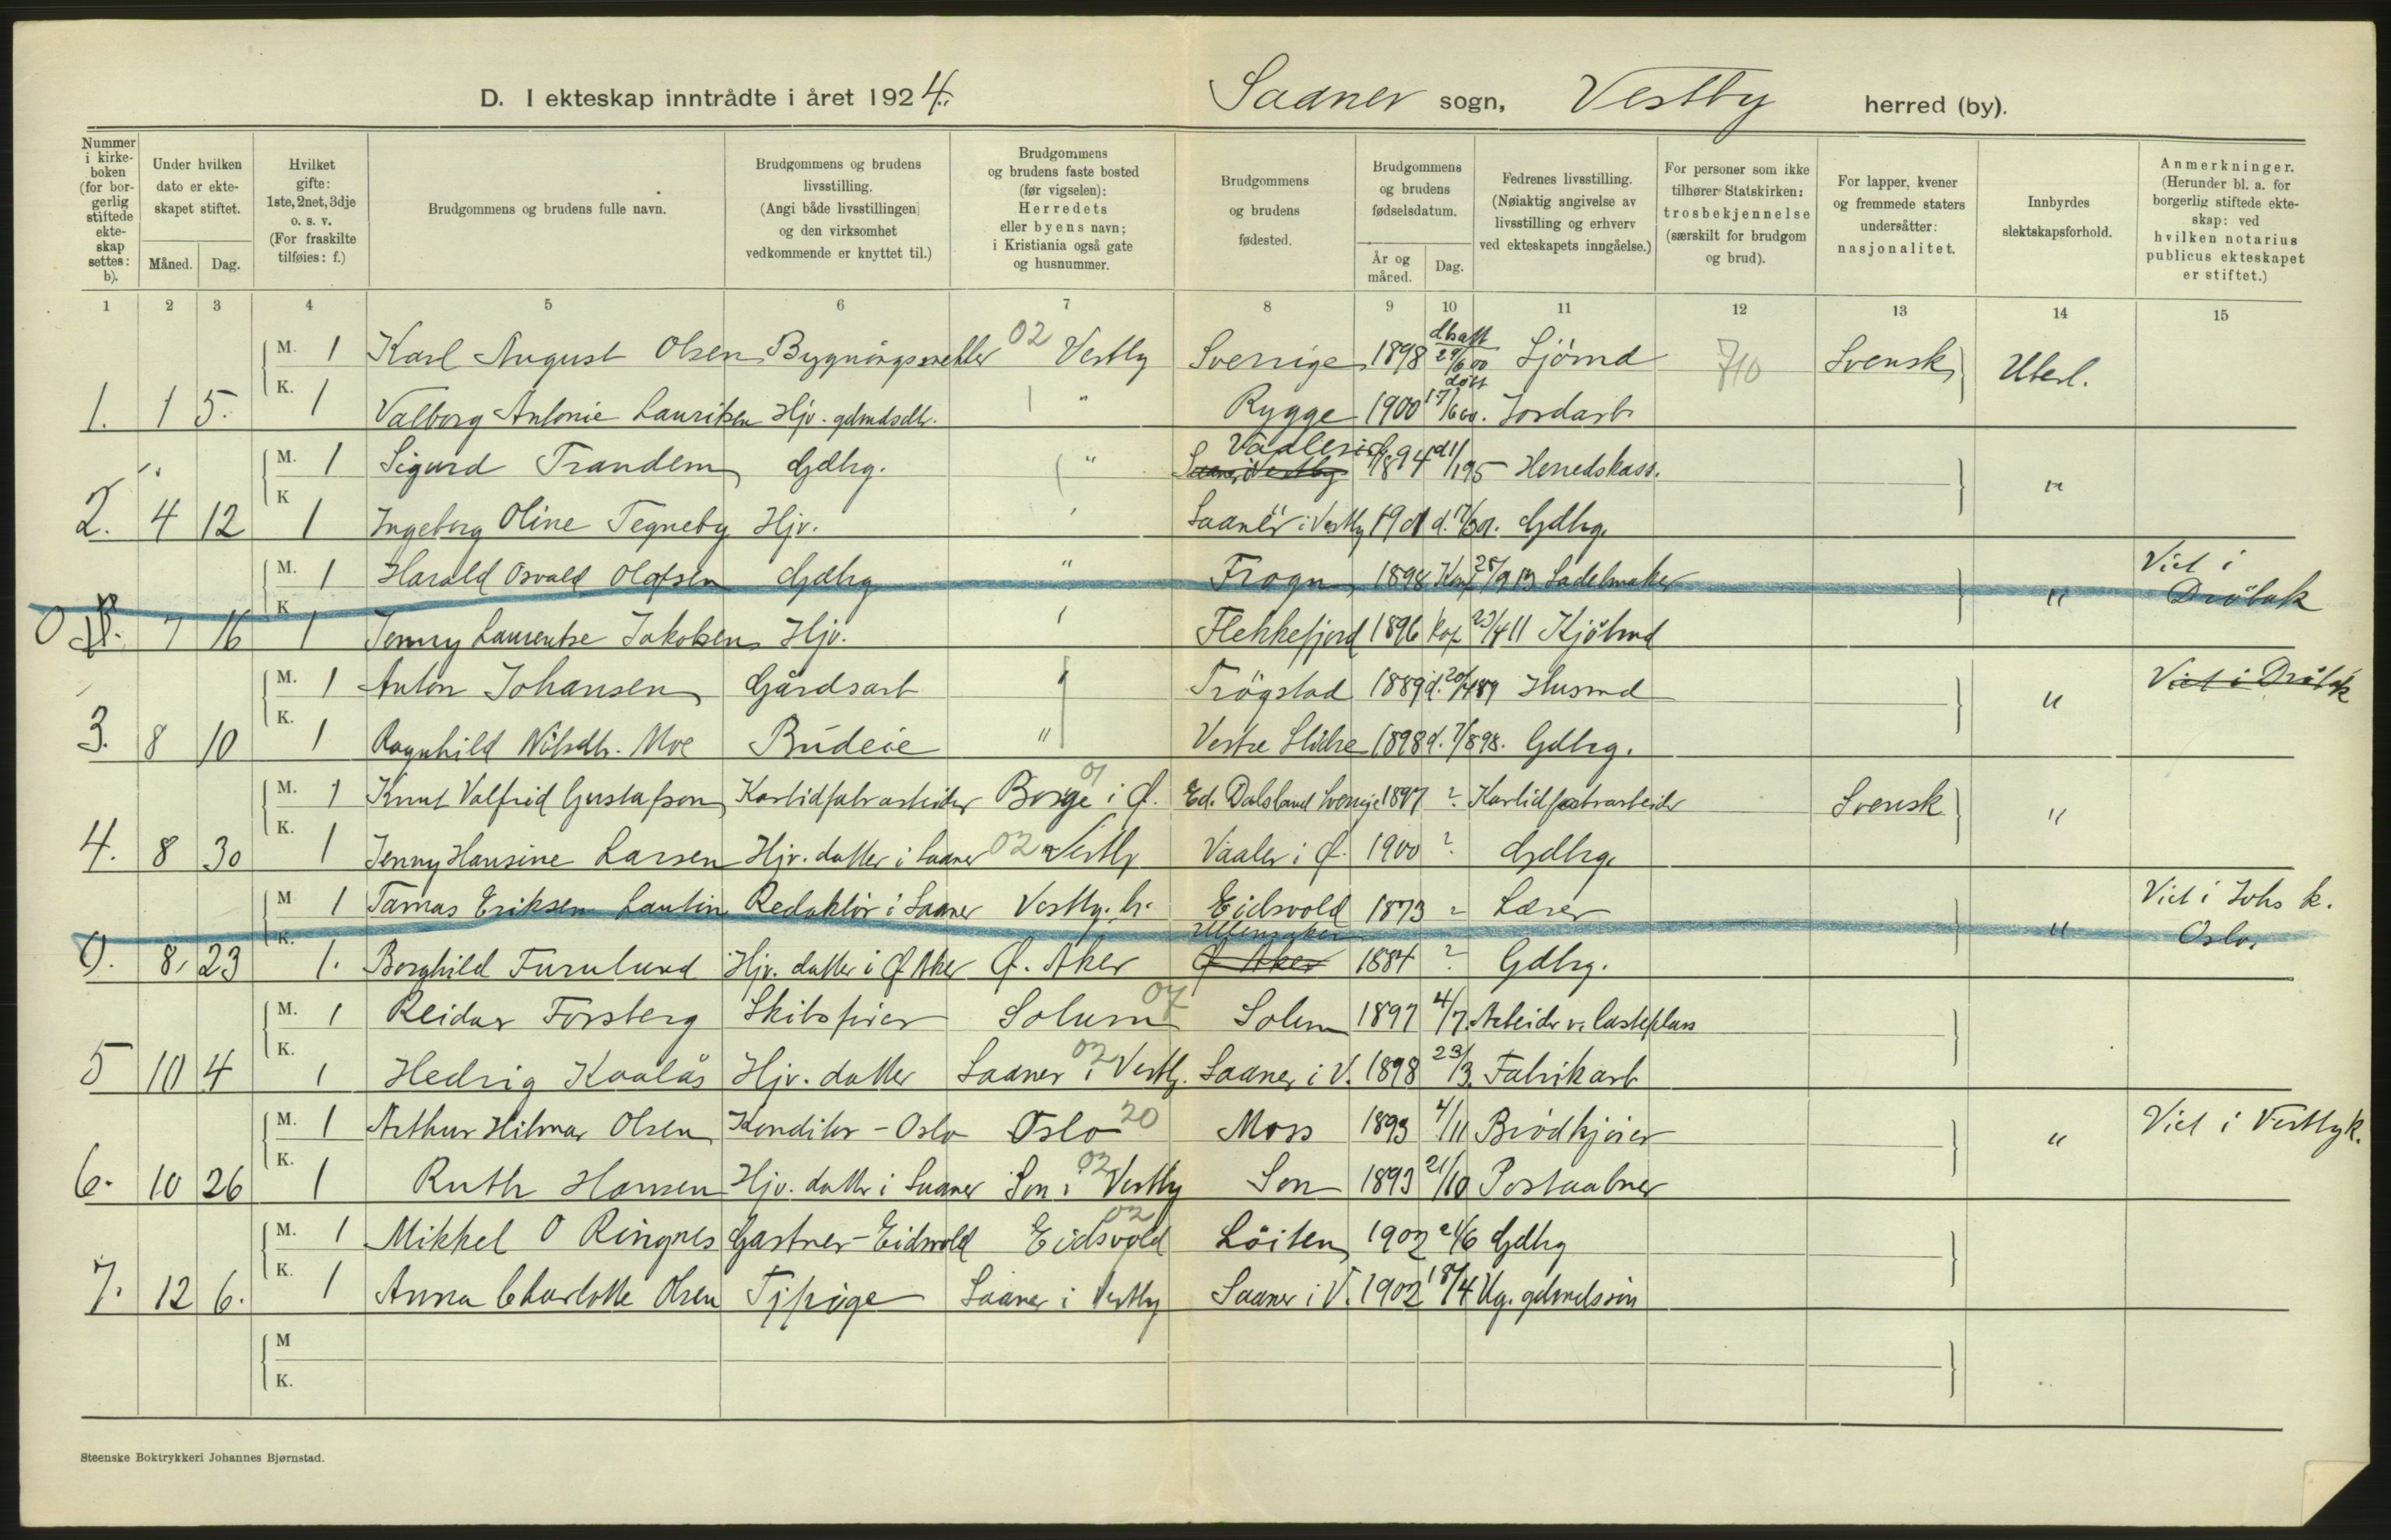 D. I ekteskap inntrådte i året 1924. Saaner sogn, Vestby herred (by).
Nummer i kirke-boken (for bor-gerlig stiftede ekte-skap settes: b).
Under hvilken dato er ekte-skapet stiftet.
Måned. Dag.
Hvilket gifte: 1ste, 2net, 3dje o. s. v. (For fraskilte tilføies: f.)
Brudgommens og brudens fulle navn.
Brudgommens og brudens livsstilling. (Angi både livsstillingen og den virksomhet vedkommende er knyttet til.)
Brudgommens og brudens faste bosted (før vigselen): Herredets eller byens navn; i Kristiania også gate og husnummer.
Brudgommens og brudens fødested.
Brudgommens og brudens fødselsdatum.
År og måned. Dag.
Fedrenes livsstilling. (Nøiaktig angivelse av livsstilling og erhverv ved ekteskapets inngåelse.)
For personer som ikke tilhører Statskirken: trosbekjennelse (særskilt for brudgom og brud).
For lapper, kvener og fremmede staters undersåtter: nasjonalitet.
Innbyrdes slektskapsforhold.
Anmerkninger. (Herunder bl. a. for borgerlig stiftede ekte-skap: ved hvilken notarius publicus ekteskapet er stiftet.)
1 2 3 4 5 6 7 8 9 10 11 12 13 14 15
M. 1 Karl August Olsen 02 Vestby Sverige 1898 29/6 00 Sjömd 710 Svensk Ubesl.
1. 1 5. K. 1 Valborg Antonie Lauritsen Hjv. gdmdsdtr. " Rygge 1900 17/6 00. Jordarb.
M. 1 Sigurd Trandem Gdbrg. " Saaner i Vestby Vaaler i Ø 1894 d 1/1 95 Herredskass.
2. 4 12 K 1 Ingeborg Oline Tegneby Hjv. Saaner i Vestby 1901 Gdbrg. "
M. 1 Harald Osvald Olafsen Gdbrg " Frogn 1898 Konf 28/9 13 Sadelmaker Viet i
0 7 16 K 1 Jenny Laurentse Jakobsen Hjv. Flekkefjord 1896 Kof 23/4 11 Kjöbmd " Dröbak
M. 1 Anton Johansen Gårdsarb Trögstad 1889 d. 20/4 89 Husmd Viet i Dröbak
3. 8 10 K. 1 Ragnhild Nilsdtr. Moe Budeie " Vestre Slidre 1898 d. 7/8 98. Gdbrg. "
M. 1 Knut Valfrid Gustafson Karbidfabrarbeider 01 Borge i Ø. Ed. Dalsland Sverige 1897 ? Karbidfabrarbeider Svensk
4. 8 30 K. 1 Jenny Hansine Larsen Hjv. datter i Saaner 02 Vestby Vaaler i Ø. 1900 ? Gdbrg. "
M 1 Tamas Eriksen Lautin Redaktör i Saaner Vestby. Eidsvold 1873 ? Lærer Viet i Johs k.
0. 8. 23 K. 1. Borghild Furulund Hjv. datter i Ø Aker Ø. Aker Ø Aker Ullensaker 1884 ? Gdbrg. " Oslo.
M. 1 Reidar Forsberg Skibsfører 07 Solum Solum 1897 4/7. Arbeider v. lasteplass
5 10 4 K. 1 Hedvig Kaalås Hjv. datter 02 Saaner i Vestby. Saaner i V. 1898 23/3. Fabrikarb
M. 1 Arthur Hilmar Olsen Konditor - Oslo Oslo 20 Moss 1893 4/11 Brödkjører Viet i Vestby k.
6. 10 26 K. 1 Ruth Hansen Hjv. datter i Saaner 02 Son i Vestby Son 1893 21/10 Postaabner "
M. 1 Mikkel O Ringnes Gartner - Eidsvold 02 Eidsvold Löiten 1902 21/6 Gdbrg
7. 12 6. K. 1 Anna Charlotte Olsen Tjpige Saaner i Vestby Saaner i V. 1902 18/4 Ug. gdmdssön
M
K.
Steenske Boktrykkeri Johannes Bjørnstad.